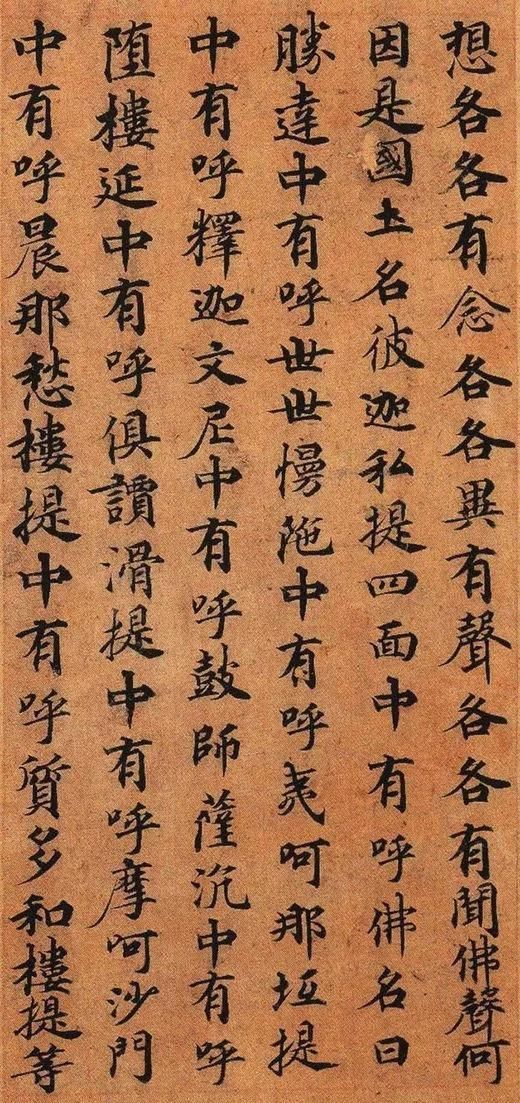 想各各有念各各異有聲各各有聞佛聲何
因是國土名彼迦私提四面中有呼佛名曰
勝達中有呼世世慢陁中有呼夷呵那坵提
中有呼釋迦文尼中有呼鼓師薩沉中有呼
墮樓延中有呼俱讀滑提中有呼摩呵沙門
中有呼晨那愁樓提中有呼質多和樓提等